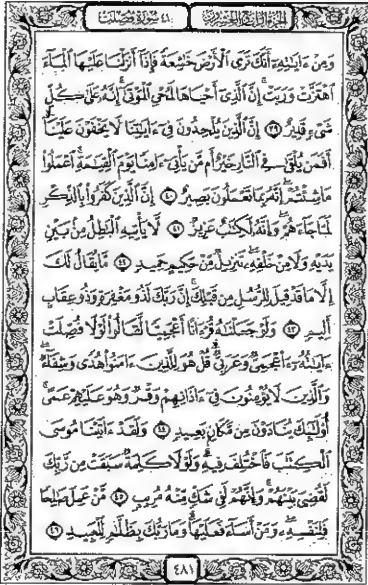 الجزء الرابع والعشرون
٤١ سورة فصلت
وَمِنْ ءَايَـٰتِهِۦٓ أَنَّكَ تَرَى ٱلْأَرْضَ خَـٰشِعَةً فَإِذَآ أَنزَلْنَا عَلَيْهَا ٱلْمَآءَ
ٱهْتَزَّتْ وَرَبَتْ ۚ إِنَّ ٱلَّذِىٓ أَحْيَاهَا لَمُحْىِ ٱلْمَوْتَىٰٓ ۚ إِنَّهُۥ عَلَىٰ كُلِّ
شَىْءٍ قَدِيرٌ ٣٩ إِنَّ ٱلَّذِينَ يُلْحِدُونَ فِىٓ ءَايَـٰتِنَا لَا يَخْفَوْنَ عَلَيْنَآ ۗ
أَفَمَن يُلْقَىٰ فِى ٱلنَّارِ خَيْرٌ أَم مَّن يَأْتِىٓ ءَامِنًا يَوْمَ ٱلْقِيَـٰمَةِ ۚ ٱعْمَلُوا۟
مَا شِئْتُمْ ۖ إِنَّهُۥ بِمَا تَعْمَلُونَ بَصِيرٌ ٤٠ إِنَّ ٱلَّذِينَ كَفَرُوا۟ بِٱلذِّكْرِ
لَمَّا جَآءَهُمْ ۖ وَإِنَّهُۥ لَكِتَـٰبٌ عَزِيزٌ ٤١ لَّا يَأْتِيهِ ٱلْبَـٰطِلُ مِنۢ بَيْنِ
يَدَيْهِ وَلَا مِنْ خَلْفِهِۦ ۖ تَنزِيلٌ مِّنْ حَكِيمٍ حَمِيدٍ ٤٢ مَّا يُقَالُ لَكَ
إِلَّا مَا قَدْ قِيلَ لِلرُّسُلِ مِن قَبْلِكَ ۚ إِنَّ رَبَّكَ لَذُو مَغْفِرَةٍ وَذُو عِقَابٍ
أَلِيمٍ ٤٣ وَلَوْ جَعَلْنَـٰهُ قُرْءَانًا أَعْجَمِيًّا لَّقَالُوا۟ لَوْلَا فُصِّلَتْ
ءَايَـٰتُهُۥٓ ۖ ءَا۬عْجَمِىٌّ وَعَرَبِىٌّ ۗ قُلْ هُوَ لِلَّذِينَ ءَامَنُوا۟ هُدًى وَشِفَآءٌ ۖ
وَٱلَّذِينَ لَا يُؤْمِنُونَ فِىٓ ءَاذَانِهِمْ وَقْرٌ وَهُوَ عَلَيْهِمْ عَمًى ۚ
أُو۟لَـٰٓئِكَ يُنَادَوْنَ مِن مَّكَانٍۭ بَعِيدٍ ٤٤ وَلَقَدْ ءَاتَيْنَا مُوسَى
ٱلْكِتَـٰبَ فَٱخْتُلِفَ فِيهِ ۗ وَلَوْلَا كَلِمَةٌ سَبَقَتْ مِن رَّبِّكَ
لَقُضِىَ بَيْنَهُمْ ۚ وَإِنَّهُمْ لَفِى شَكٍّ مِّنْهُ مُرِيبٍ ٤٥ مَّنْ عَمِلَ صَـٰلِحًا
فَلِنَفْسِهِۦ ۖ وَمَنْ أَسَآءَ فَعَلَيْهَا ۗ وَمَا رَبُّكَ بِظَلَّـٰمٍ لِّلْعَبِيدِ ٤٦
٤٨١